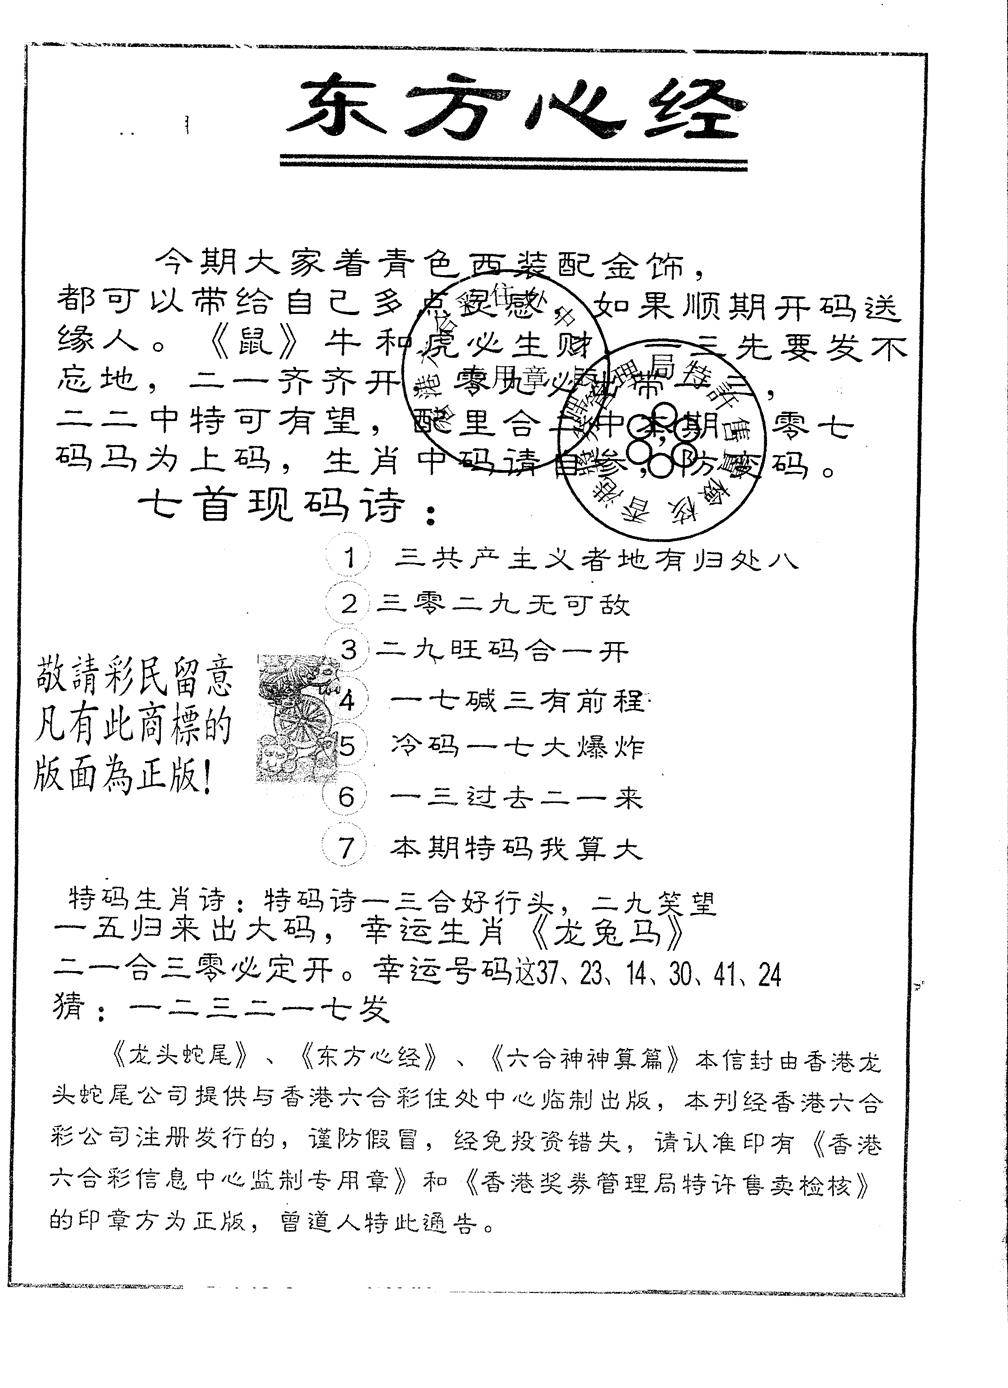 东方心经
今期大家着青色西装配金饰，
都可以带给自己多点灵感，如果顺期开码送
缘人。《鼠》牛和虎必生财，一三先要发不
忘地，二一齐齐开，零九必出带二三，
二二中特可有望，配里合二中本期，零七
码马为上码，生肖中码请自参，防变码。
七首现码诗：
1 三共产主义者地有归处八
2 三零二九无可敌
3 二九旺码合一开
4 一七碱三有前程
5 冷码一七大爆炸
6 一三过去二一来
7 本期特码我算大
敬請彩民留意
凡有此商標的
版面為正版！
特码生肖诗：特码诗一三合好行头，二九笑望
一五归来出大码，幸运生肖《龙兔马》
二一合三零必定开。幸运号码这37、23、14、30、41、24
猜：一二三二一七发
《龙头蛇尾》、《东方心经》、《六合神神算篇》本信封由香港龙
头蛇尾公司提供与香港六合彩住处中心临制出版，本刊经香港六合
彩公司注册发行的，谨防假冒，经免投资错失，请认准印有《香港
六合彩信息中心监制专用章》和《香港奖券管理局特许售卖检核》
的印章方为正版，曾道人特此通告。